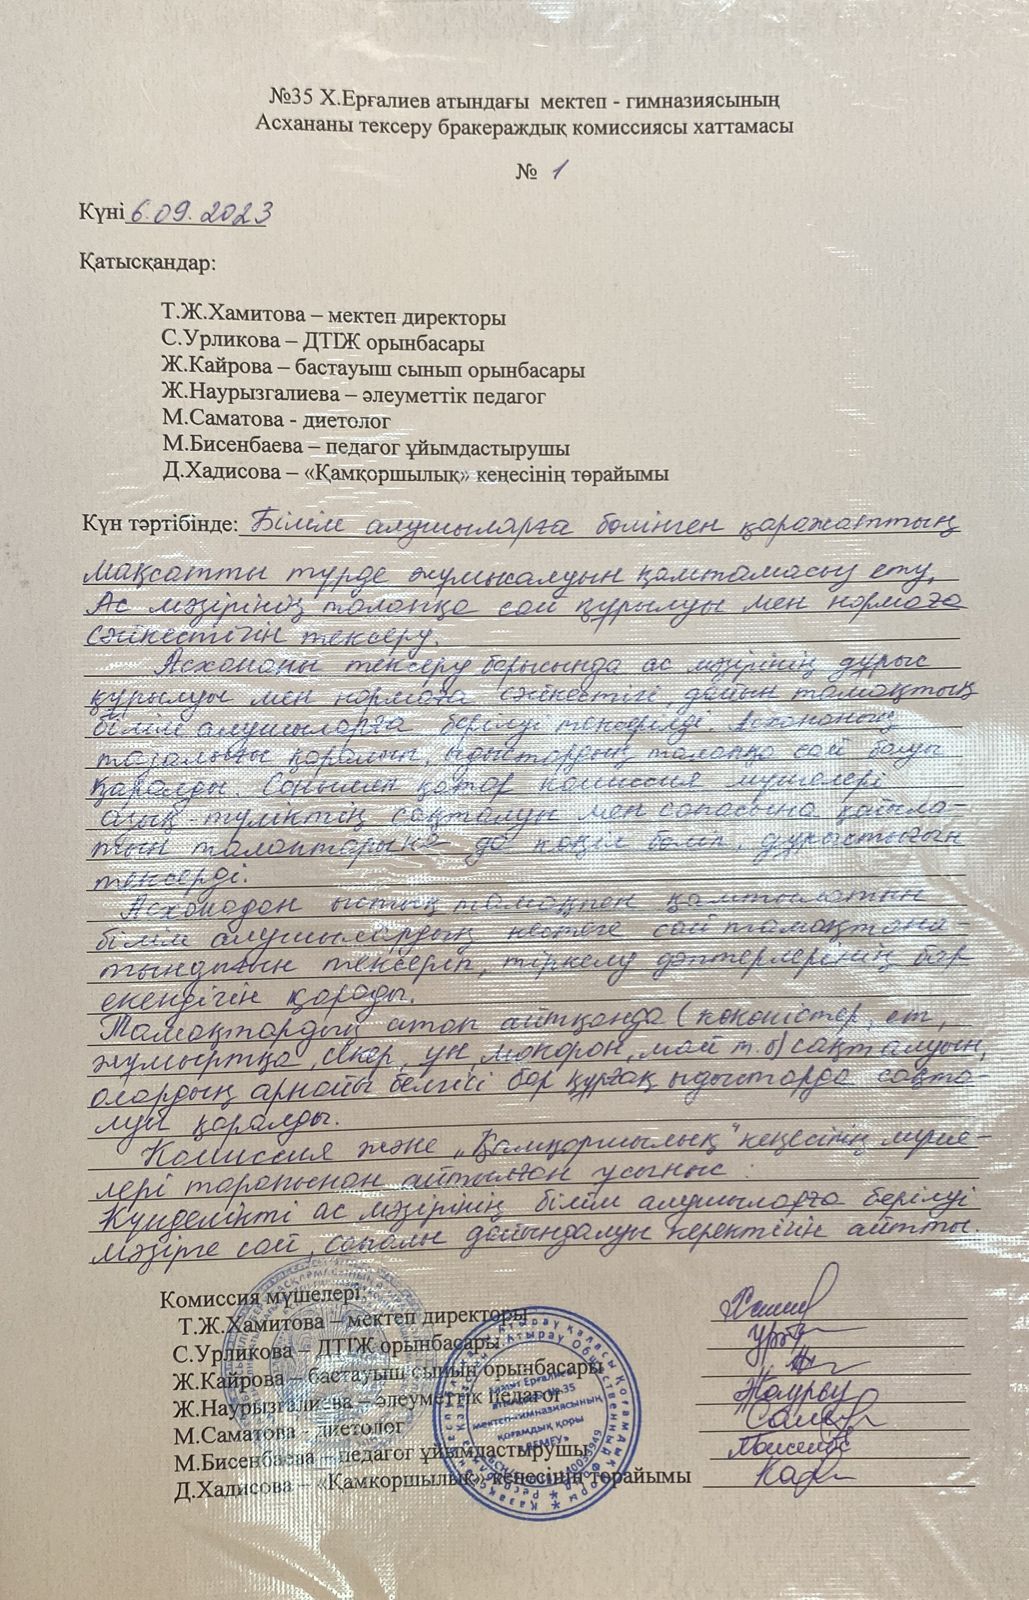 №35 Х.Ерғалиев атындағы мектеп - гимназиясының
Асхананы тексеру бракераждық комиссиясы хаттамасы
№ 1
Күні 6.09.2023
Қатысқандар:
Т.Ж.Хамитова – мектеп директоры
С.Урликова – ДТІЖ орынбасары
Ж.Кайрова – бастауыш сынып орынбасары
Ж.Наурызгалиева – әлеуметтік педагог
М.Саматова - диетолог
М.Бисенбаева – педагог ұйымдастырушы
Д.Хадисова – «Қамқоршылық» кеңесінің төрайымы
Күн тәртібінде: Білім алушыларға бөлінген қаражаттың
мақсатты түрде жұмысалуын қамтамасыз ету,
Ас мәзірінің талапқа сай құрылуы мен нормаға
сәйкестігін тексеру.
Асхананы тексеру барысында ас мәзірінің дұрыс
құрылуы мен нормаға сәйкестігі, дайын тамақтың
білім алушыларға берілуі тексерілді. Асхананың
тазалығы қаралып, ыдыстардың талапқа сай болуы
қаралды. Сонымен қатар комиссия мүшелері
азық-түліктің сақталуы мен сапасына қойыла-
тын талаптарына да көңіл бөліп, дұрыстығын
тексерді.
Асханадан ыстық тамақпен қамтылатын
білім алушылардың кестеге сай тамақтана-
тындығын тексеріп, тіркелу дәптерлерінің бар
екендігін қарады.
Тамақтардың атап айтқанда (көкөністер, ет,
жұмыртқа, секер, ұн, макорон, май т.б) сақталуын,
олардың арнайы белгісі бар құрғақ ыдыстарда сақта-
луы қаралды.
Комиссия және „Қамқоршылық" кеңесінің мүше-
лері тарапынан айтылған ұсыныс :
Күнделікті ас мәзірінің білім алушыларға берілуі
мәзірге сай, сапалы дайындалуы керектігін айтты.
Комиссия мүшелері:
Т.Ж.Хамитова – мектеп директоры
С.Урликова – ДТІЖ орынбасары
Ж.Кайрова – бастауыш сынып орынбасары
Ж.Наурызгалиева – әлеуметтік педагог
М.Саматова - диетолог
М.Бисенбаева – педагог ұйымдастырушы
Д.Хадисова – «Қамқоршылық» кеңесінің төрайымы
Ерғалиев
атындағы №35
мектеп-гимназиясының
қоғамдық қоры